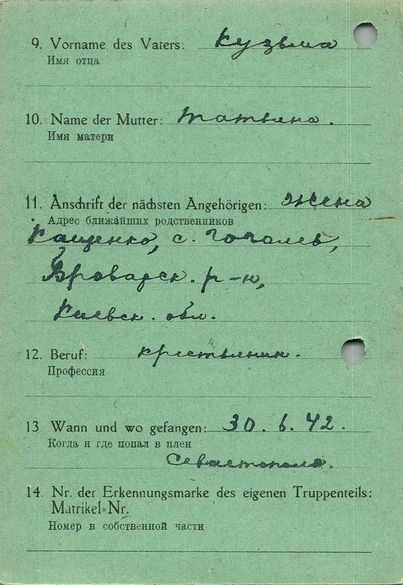 9. Vorname des Vaters: Кузьма
Имя отца
10. Name der Mutter: Татьяна.
Имя матери
11. Anschrift der nächsten Angehörigen: Жена
Адрес ближайших родственников
Кащенко, с. Гоголев,
Броварск. р-н,
Киевск. обл.
12. Beruf: крестьянин.
Профессия
13 Wann und wo gefangen: 30. 6. 42.
Когда и где попал в плен
Севастополь.
14. Nr. der Erkennungsmarke des eigenen Truppenteils:
Matrikel-Nr.
Номер в собственной части